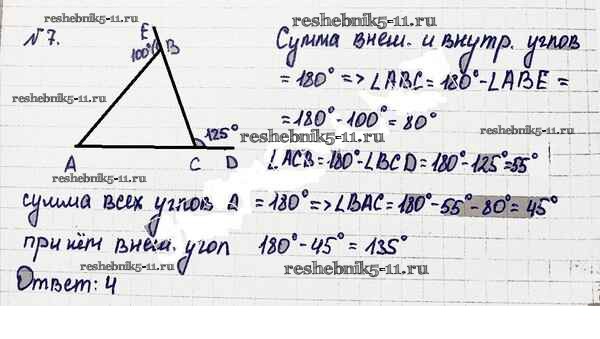 reshebnik5-11.ru
№7.
E
100°
B
125°
A
C
D
reshebnik5-11.ru
Сумма внеш. и внутр. углов
= 180° => ∠ABC = 180° - ∠ABE =
= 180° - 100° = 80°
reshebnik5-11.ru
reshebnik5-11.ru
reshebnik5-11.ru
reshebnik5-11.ru
∠ACB = 180° - ∠BCD = 180° - 125° = 55°
reshebnik5-11.ru
сумма всех углов Δ = 180° => ∠BAC = 180° - 55° - 80° = 45°
reshebnik5-11.ru
при нём внеш. угол 180° - 45° = 135°
reshebnik5-11.ru
reshebnik5-11.ru
Ответ: 4